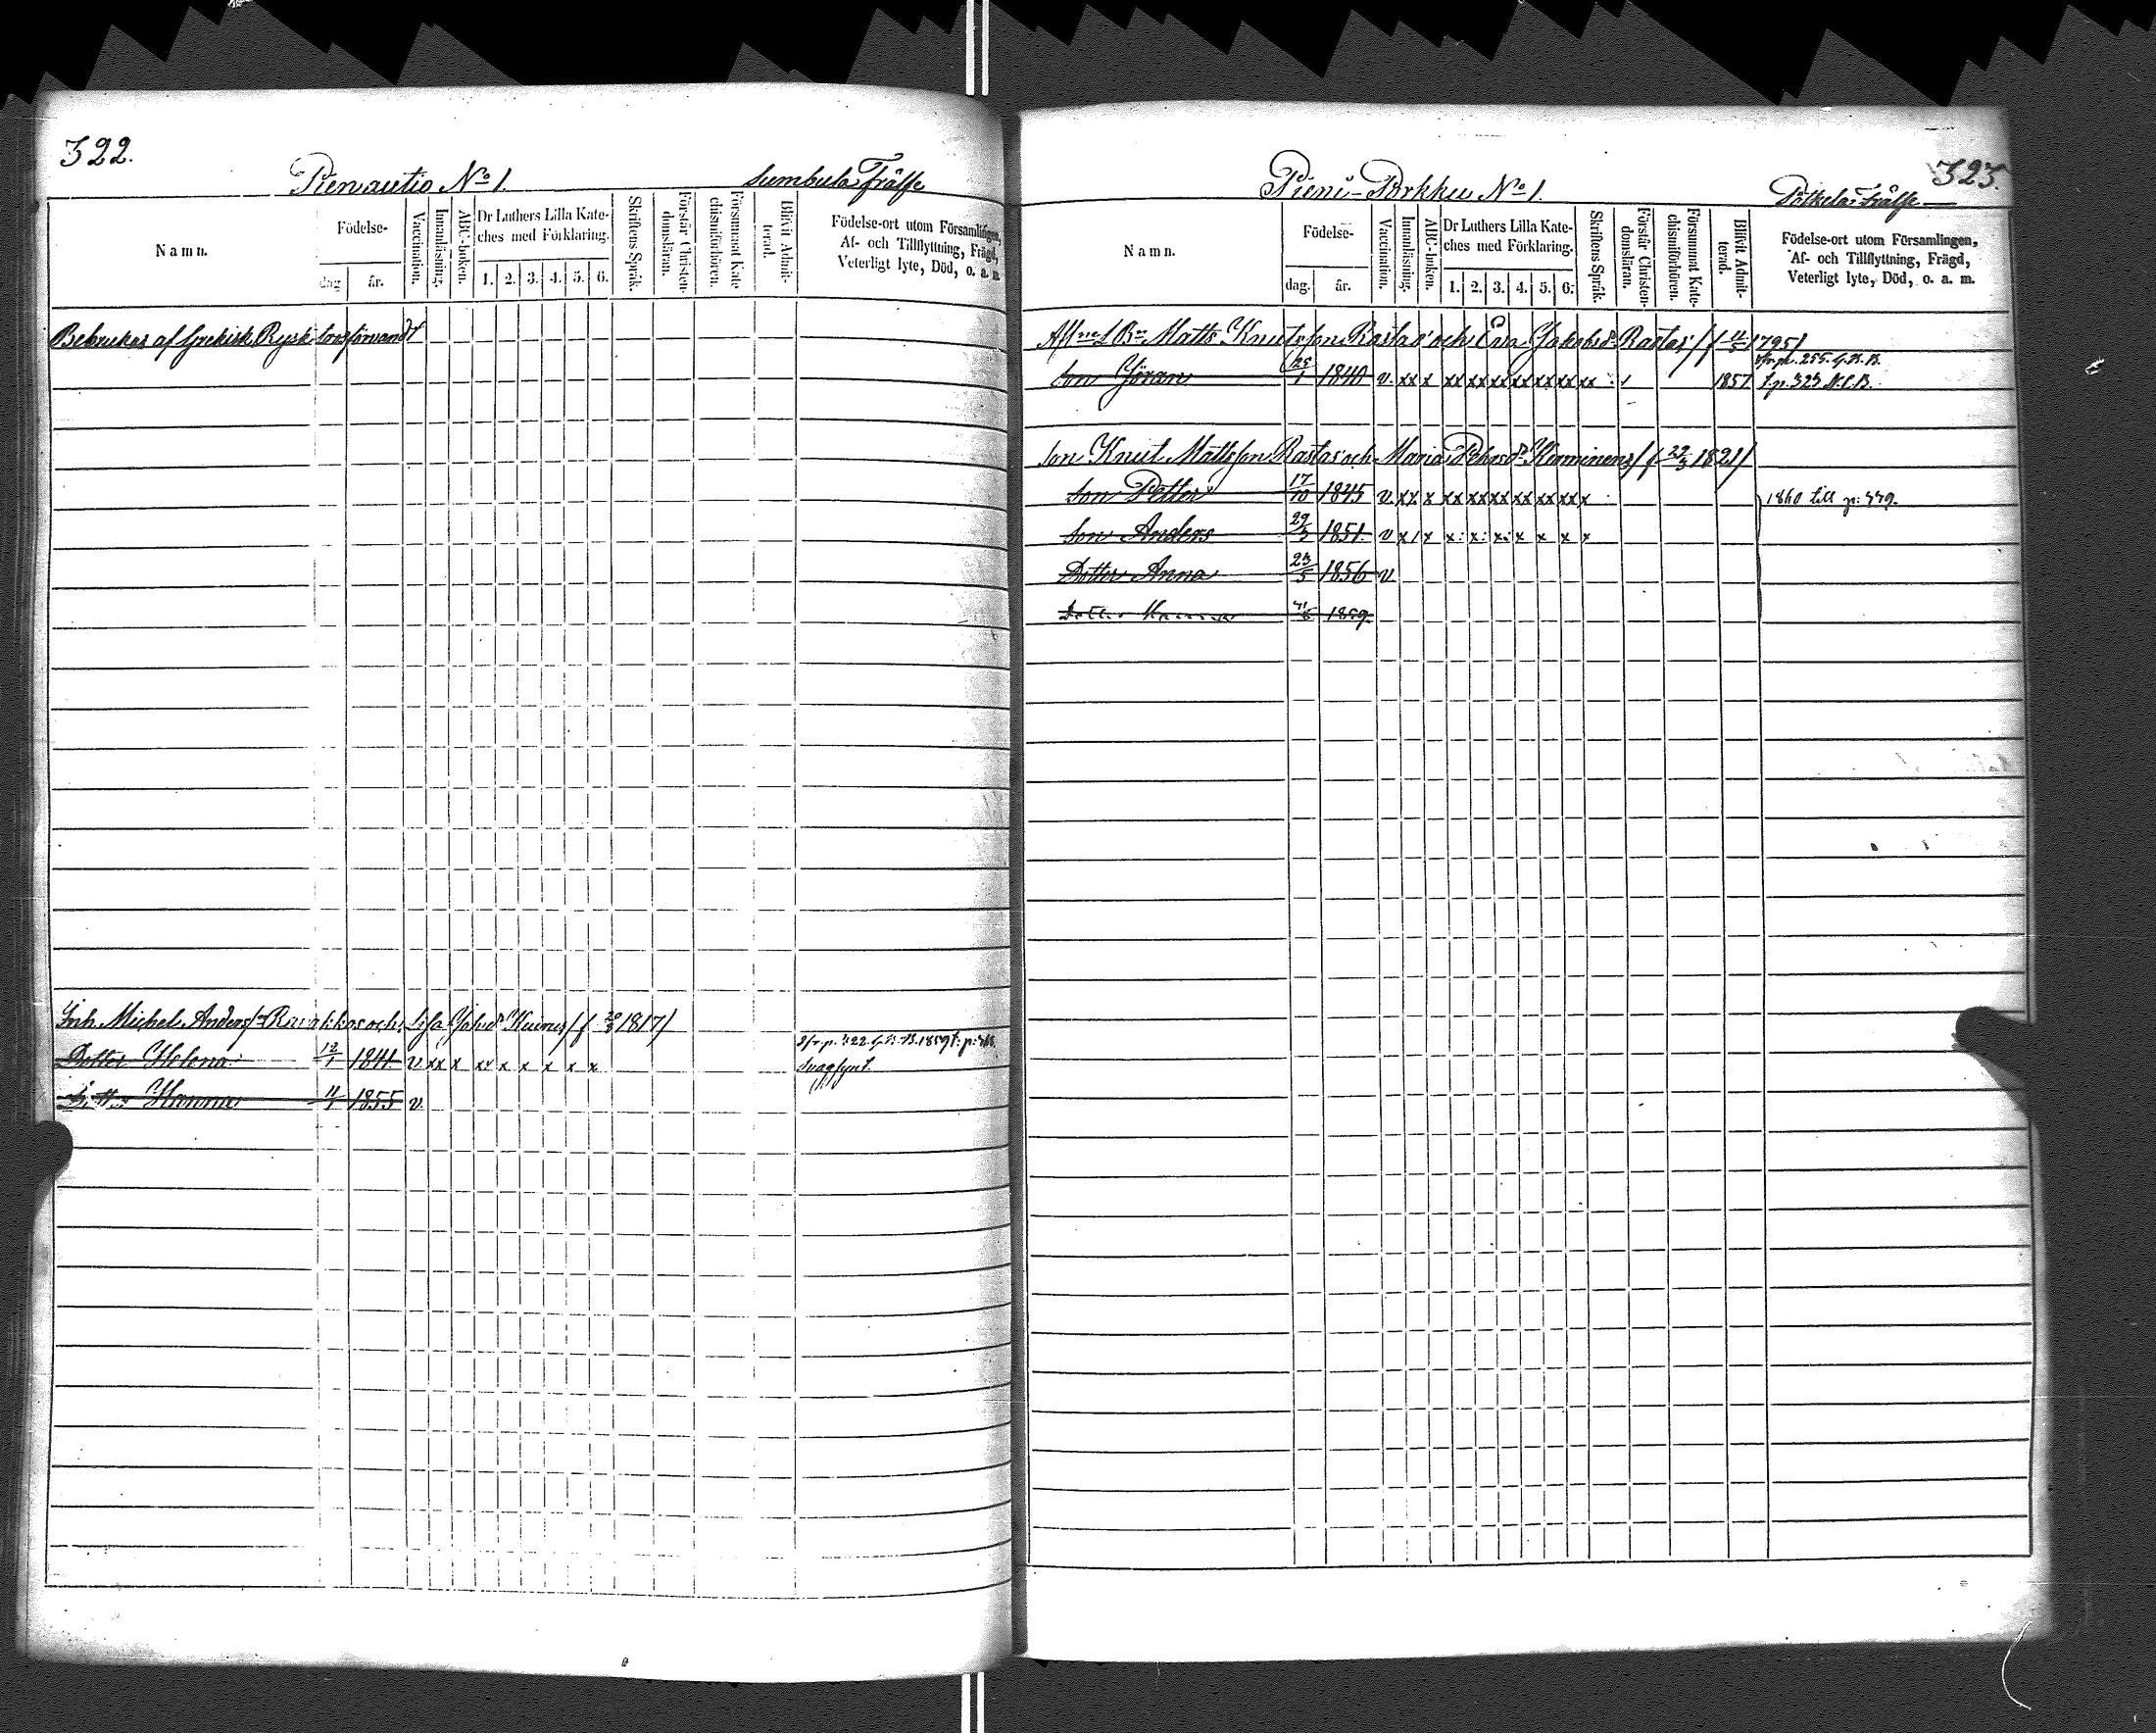 322.
Pienautio No 1.
Sumbula Frälse
Namn.
Födelse-
dag
år.
Vaccination.
Innanläsning.
ABC-boken.
Dr Luthers Lilla Kate-
ches med Förklaring.
1. 2. 3. 4. 5. 6.
Skriftens Språk.
Förstår Christen-
domsläran.
Försummat Kate-
chismiförhören.
Blifvit Admit-
terad.
Födelse-ort utom Församlingen,
Af- och Tillflyttning, Frägd,
Veterligt lyte, Död, o. a. m.
Bebrukas af Grekisk Rysk trosförvandt
Inh. Michel Anders och Lisa 1817/
Dotter Helena 12/1 1841 v. xx x xx x x x x x
Svagsynt.
Hanna 11/1 1855 v.
323.
Pieni-Porkku No 1.
Pölkelä Frälse
Namn.
Födelse-
dag.
år.
Vaccination.
Innanläsning.
ABC-boken.
Dr Luthers Lilla Kate-
ches med Förklaring.
1. 2. 3. 4. 5. 6.
Skriftens Språk.
Förstår Christen-
domsläran.
Försummat Kate-
chismiförhören.
Blifvit Admit-
terad.
Födelse-ort utom Församlingen,
Af- och Tillflyttning, Frägd,
Veterligt lyte, Död, o. a. m.
Matts Knutsson Rastas och Eva Jakobsdr Rastas /f 1795/
Son Jöran 1840 v. xx x xx xx xx xx xx xx xx 1857 t. p. 323 N.C.B.
Son Knut Mattsson Rastas och Maria Pehrsdr Kerminen /f 22/3 1821/
Son Petter 17/10 1845 v. xx x xx xx xx xx xx xx x 1860 till p: 449.
Son Anders 29/3 1851. v x x x: x: x: x x x x
Dotter Anna 23/5 1856 v
Dotter 1859.